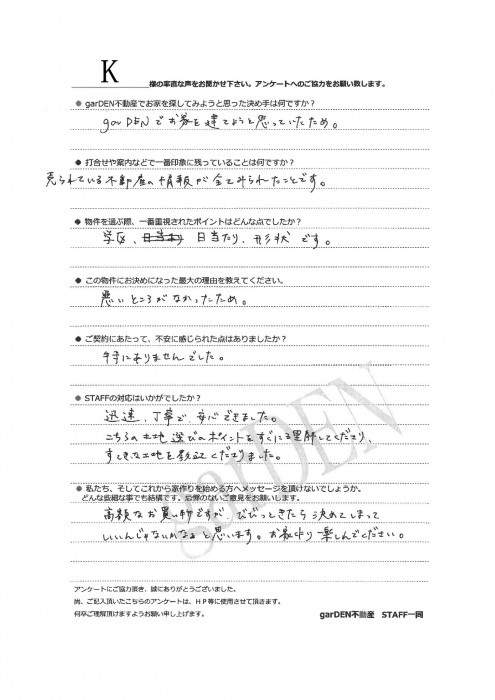 K
様の率直な声をお聞かせ下さい。アンケートへのご協力をお願い致します。
● garDEN不動産でお家を探してみようと思った決め手は何ですか？
garDENでお家を建てようと思っていたため。
● 打合せや案内などで一番印象に残っていることは何ですか？
売られている不動産の情報が全てみられたことです。
● 物件を選ぶ際、一番重視されたポイントはどんな点でしたか？
学区、日当たり、形状です。
● この物件にお決めになった最大の理由を教えてください。
悪いところがなかったため。
● ご契約にあたって、不安に感じられた点はありましたか？
特にありませんでした。
● STAFFの対応はいかがでしたか？
迅速、丁寧で、安心できました。
こちらの土地選びのポイントをすぐに理解してくださり、
すてきな土地を教えてくださりました。
● 私たち、そしてこれから家作りを始める方へメッセージを頂けないでしょうか。
どんな些細な事でも結構です。忌憚のないご意見をお願いします。
高額なお買い物ですが、びびっときたら決めてしまって
いいんじゃないかなと思います。お家作り楽しんでください。
garDEN
アンケートにご協力頂き、誠にありがとうございました。
尚、ご記入頂いたこちらのアンケートは、ＨＰ等に使用させて頂きます。
何卒ご理解頂けますようお願い申し上げます。
garDEN不動産　STAFF一同